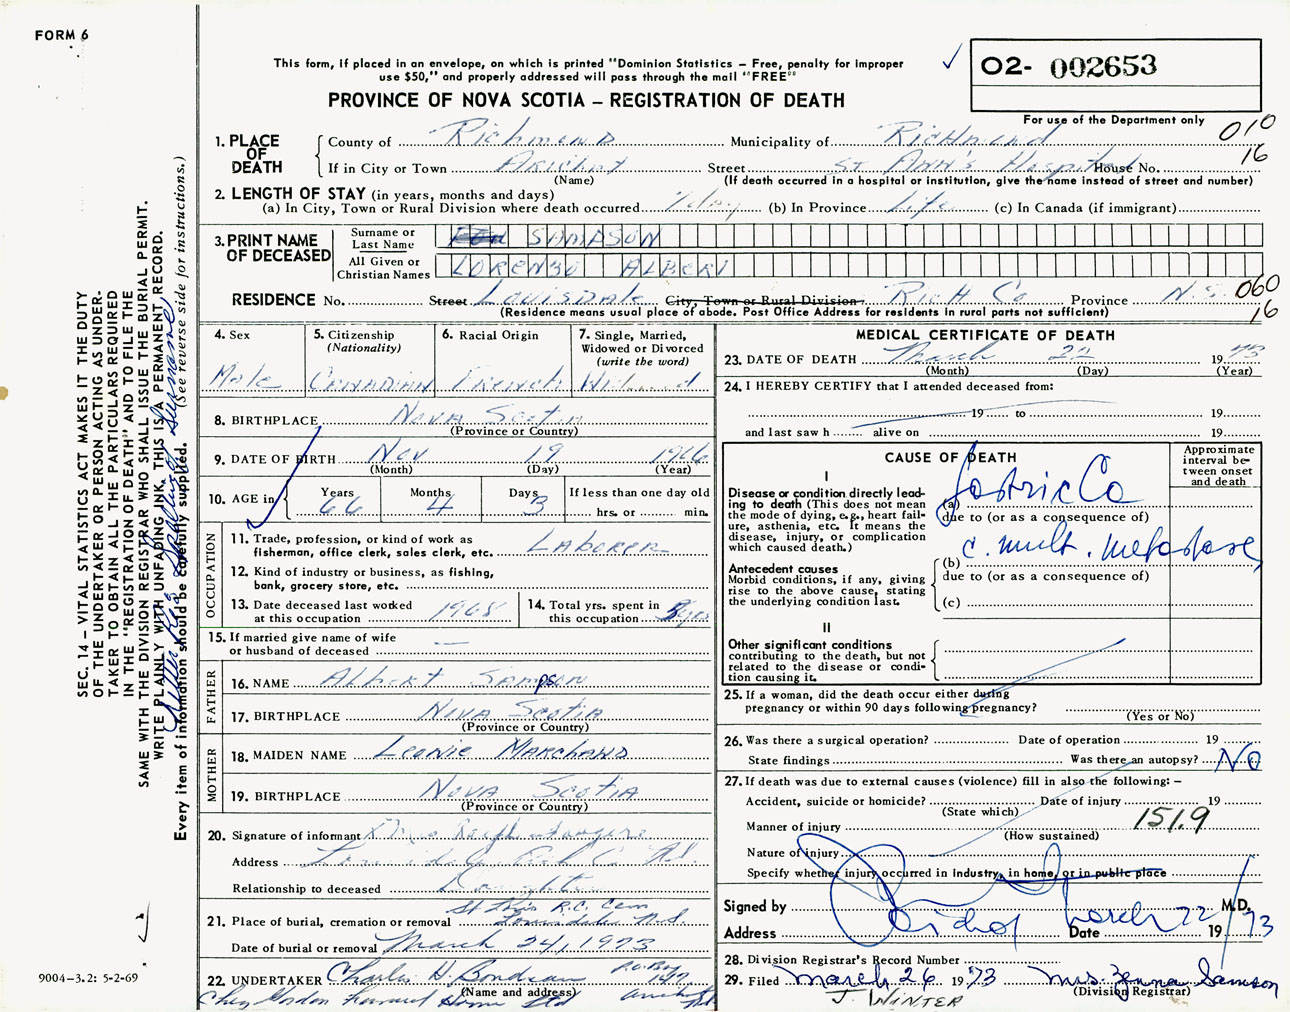 FORM 6
This form, if placed in an envelope, on which is printed "Dominion Statistics – Free, penalty for improper
use $50," and properly addressed will pass through the mail "FREE"
PROVINCE OF NOVA SCOTIA – REGISTRATION OF DEATH
✓ O2- 002653
For use of the Department only
010
16
1. PLACE OF DEATH County of Richmond Municipality of Richmond
If in City or Town Arichat Street St Ann's Hospital House No.
(Name) (If death occurred in a hospital or institution, give the name instead of street and number)
2. LENGTH OF STAY (in years, months and days)
(a) In City, Town or Rural Division where death occurred (b) In Province Life (c) In Canada (if immigrant)
3. PRINT NAME OF DECEASED Surname or Last Name SAMPSON
All Given or Christian Names LORENZO ALBERT
RESIDENCE No. Street Louisdale City, Town or Rural Division Rich Co Province N.S.
060
16
(Residence means usual place of abode. Post Office Address for residents in rural parts not sufficient)
4. Sex 5. Citizenship (Nationality) 6. Racial Origin 7. Single, Married, Widowed or Divorced (write the word)
Male Canadian French Widowed
8. BIRTHPLACE Nova Scotia
(Province or Country)
9. DATE OF BIRTH Nov 19 1906
(Month) (Day) (Year)
10. AGE in Years Months Days If less than one day old
66 4 3 hrs. or min.
OCCUPATION
11. Trade, profession, or kind of work as
fisherman, office clerk, sales clerk, etc. Laborer
12. Kind of industry or business, as fishing,
bank, grocery store, etc.
13. Date deceased last worked
at this occupation 1968
14. Total yrs. spent in
this occupation
15. If married give name of wife
or husband of deceased —
FATHER
16. NAME Albert Sampson
17. BIRTHPLACE Nova Scotia
(Province or Country)
MOTHER
18. MAIDEN NAME Leonie Marchand
19. BIRTHPLACE Nova Scotia
(Province or Country)
20. Signature of informant Mrs
Address Louisdale Rich Co N.S.
Relationship to deceased Daughter
21. Place of burial, cremation or removal St Louis R.C. Cem
Louisdale N.S.
Date of burial or removal March 24, 1973
22. UNDERTAKER Charles H. Boudreau P.O. Box
(Name and address)
Funeral Home Ltd
MEDICAL CERTIFICATE OF DEATH
23. DATE OF DEATH March 22 1973
(Month) (Day) (Year)
24. I HEREBY CERTIFY that I attended deceased from:
19 to 19
and last saw h alive on 19
CAUSE OF DEATH
Approximate interval between onset and death
I
Disease or condition directly lead-
ing to death (This does not mean
the mode of dying, e.g., heart fail-
ure, asthenia, etc. It means the
disease, injury, or complication
which caused death.)
(a) Gastric Ca
due to (or as a consequence of)
(b) c. mult. metastases
due to (or as a consequence of)
(c)
Antecedent causes
Morbid conditions, if any, giving
rise to the above cause, stating
the underlying condition last.
II
Other significant conditions
contributing to the death, but not
related to the disease or condi-
tion causing it.
25. If a woman, did the death occur either during
pregnancy or within 90 days following pregnancy?
(Yes or No)
26. Was there a surgical operation? Date of operation 19
State findings Was there an autopsy? NO
27. If death was due to external causes (violence) fill in also the following: –
Accident, suicide or homicide? Date of injury 19
(State which)
Manner of injury 151.9
(How sustained)
Nature of injury
Specify whether injury occurred in Industry, in home, or in public place
Signed by M.D.
Address Arichat Date March 22 1973
28. Division Registrar's Record Number
29. Filed March 26 1973 Mrs. Samson
(Division Registrar)
J. WINTER
SEC. 14 – VITAL STATISTICS ACT MAKES IT THE DUTY
OF THE UNDERTAKER OR PERSON ACTING AS UNDER-
TAKER TO OBTAIN ALL THE PARTICULARS REQUIRED
IN THE "REGISTRATION OF DEATH" AND TO FILE THE
SAME WITH THE DIVISION REGISTRAR WHO SHALL ISSUE THE BURIAL PERMIT.
WRITE PLAINLY WITH UNFADING INK. THIS IS A PERMANENT RECORD.
Every item of information should be carefully supplied. (See reverse side for instructions.)
Letter Re: Spelling Surname
9004–3.2: 5-2-69